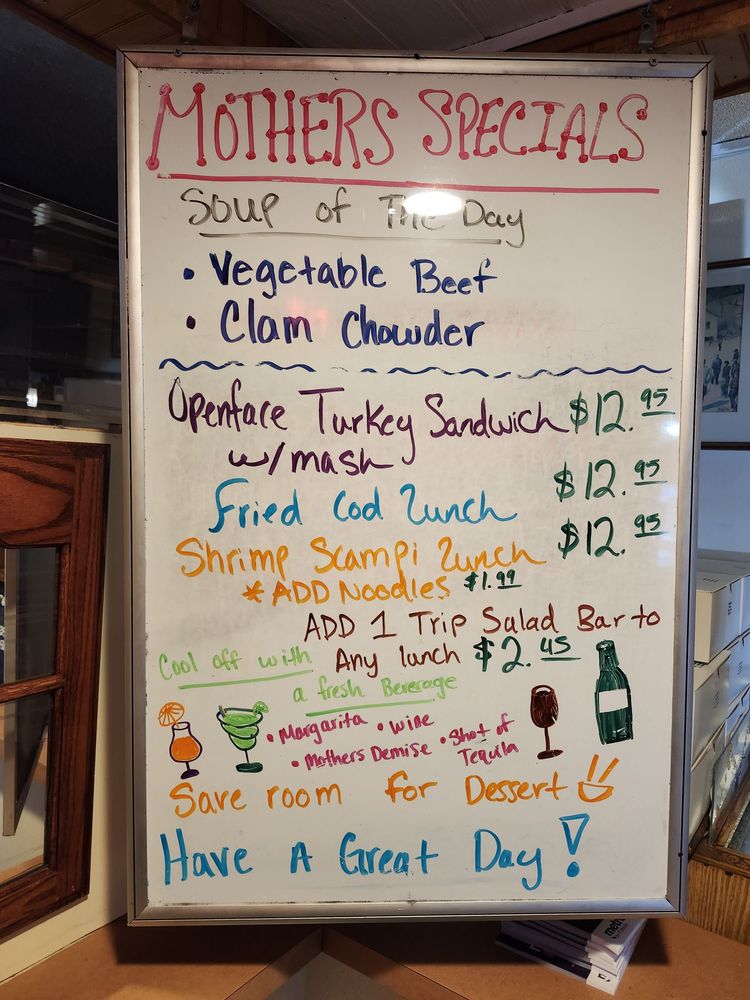 MOTHERS SPECIALS
Soup of The Day
• Vegetable Beef
• Clam Chowder
Openface Turkey Sandwich $12.95
w/mash
Fried Cod Lunch $12.95
Shrimp Scampi Lunch $12.95
* ADD Noodles $1.99
ADD 1 Trip Salad Bar to
Any lunch $2.45
Cool off with
a fresh Beverage
• Margarita • wine
• Mothers Demise • Shot of
Tequila
Save room for Dessert
Have A Great Day!